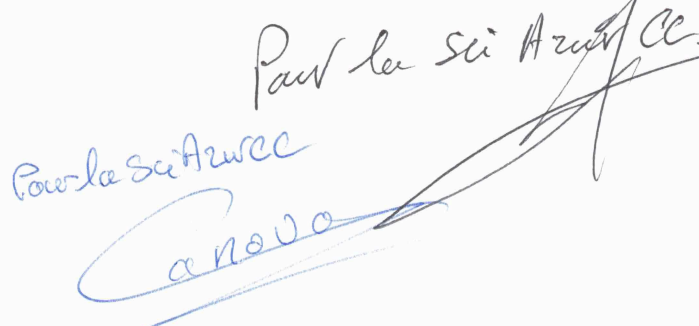 Pour la Sci Azur CC.
Pour la Sci Azur CC
Canova